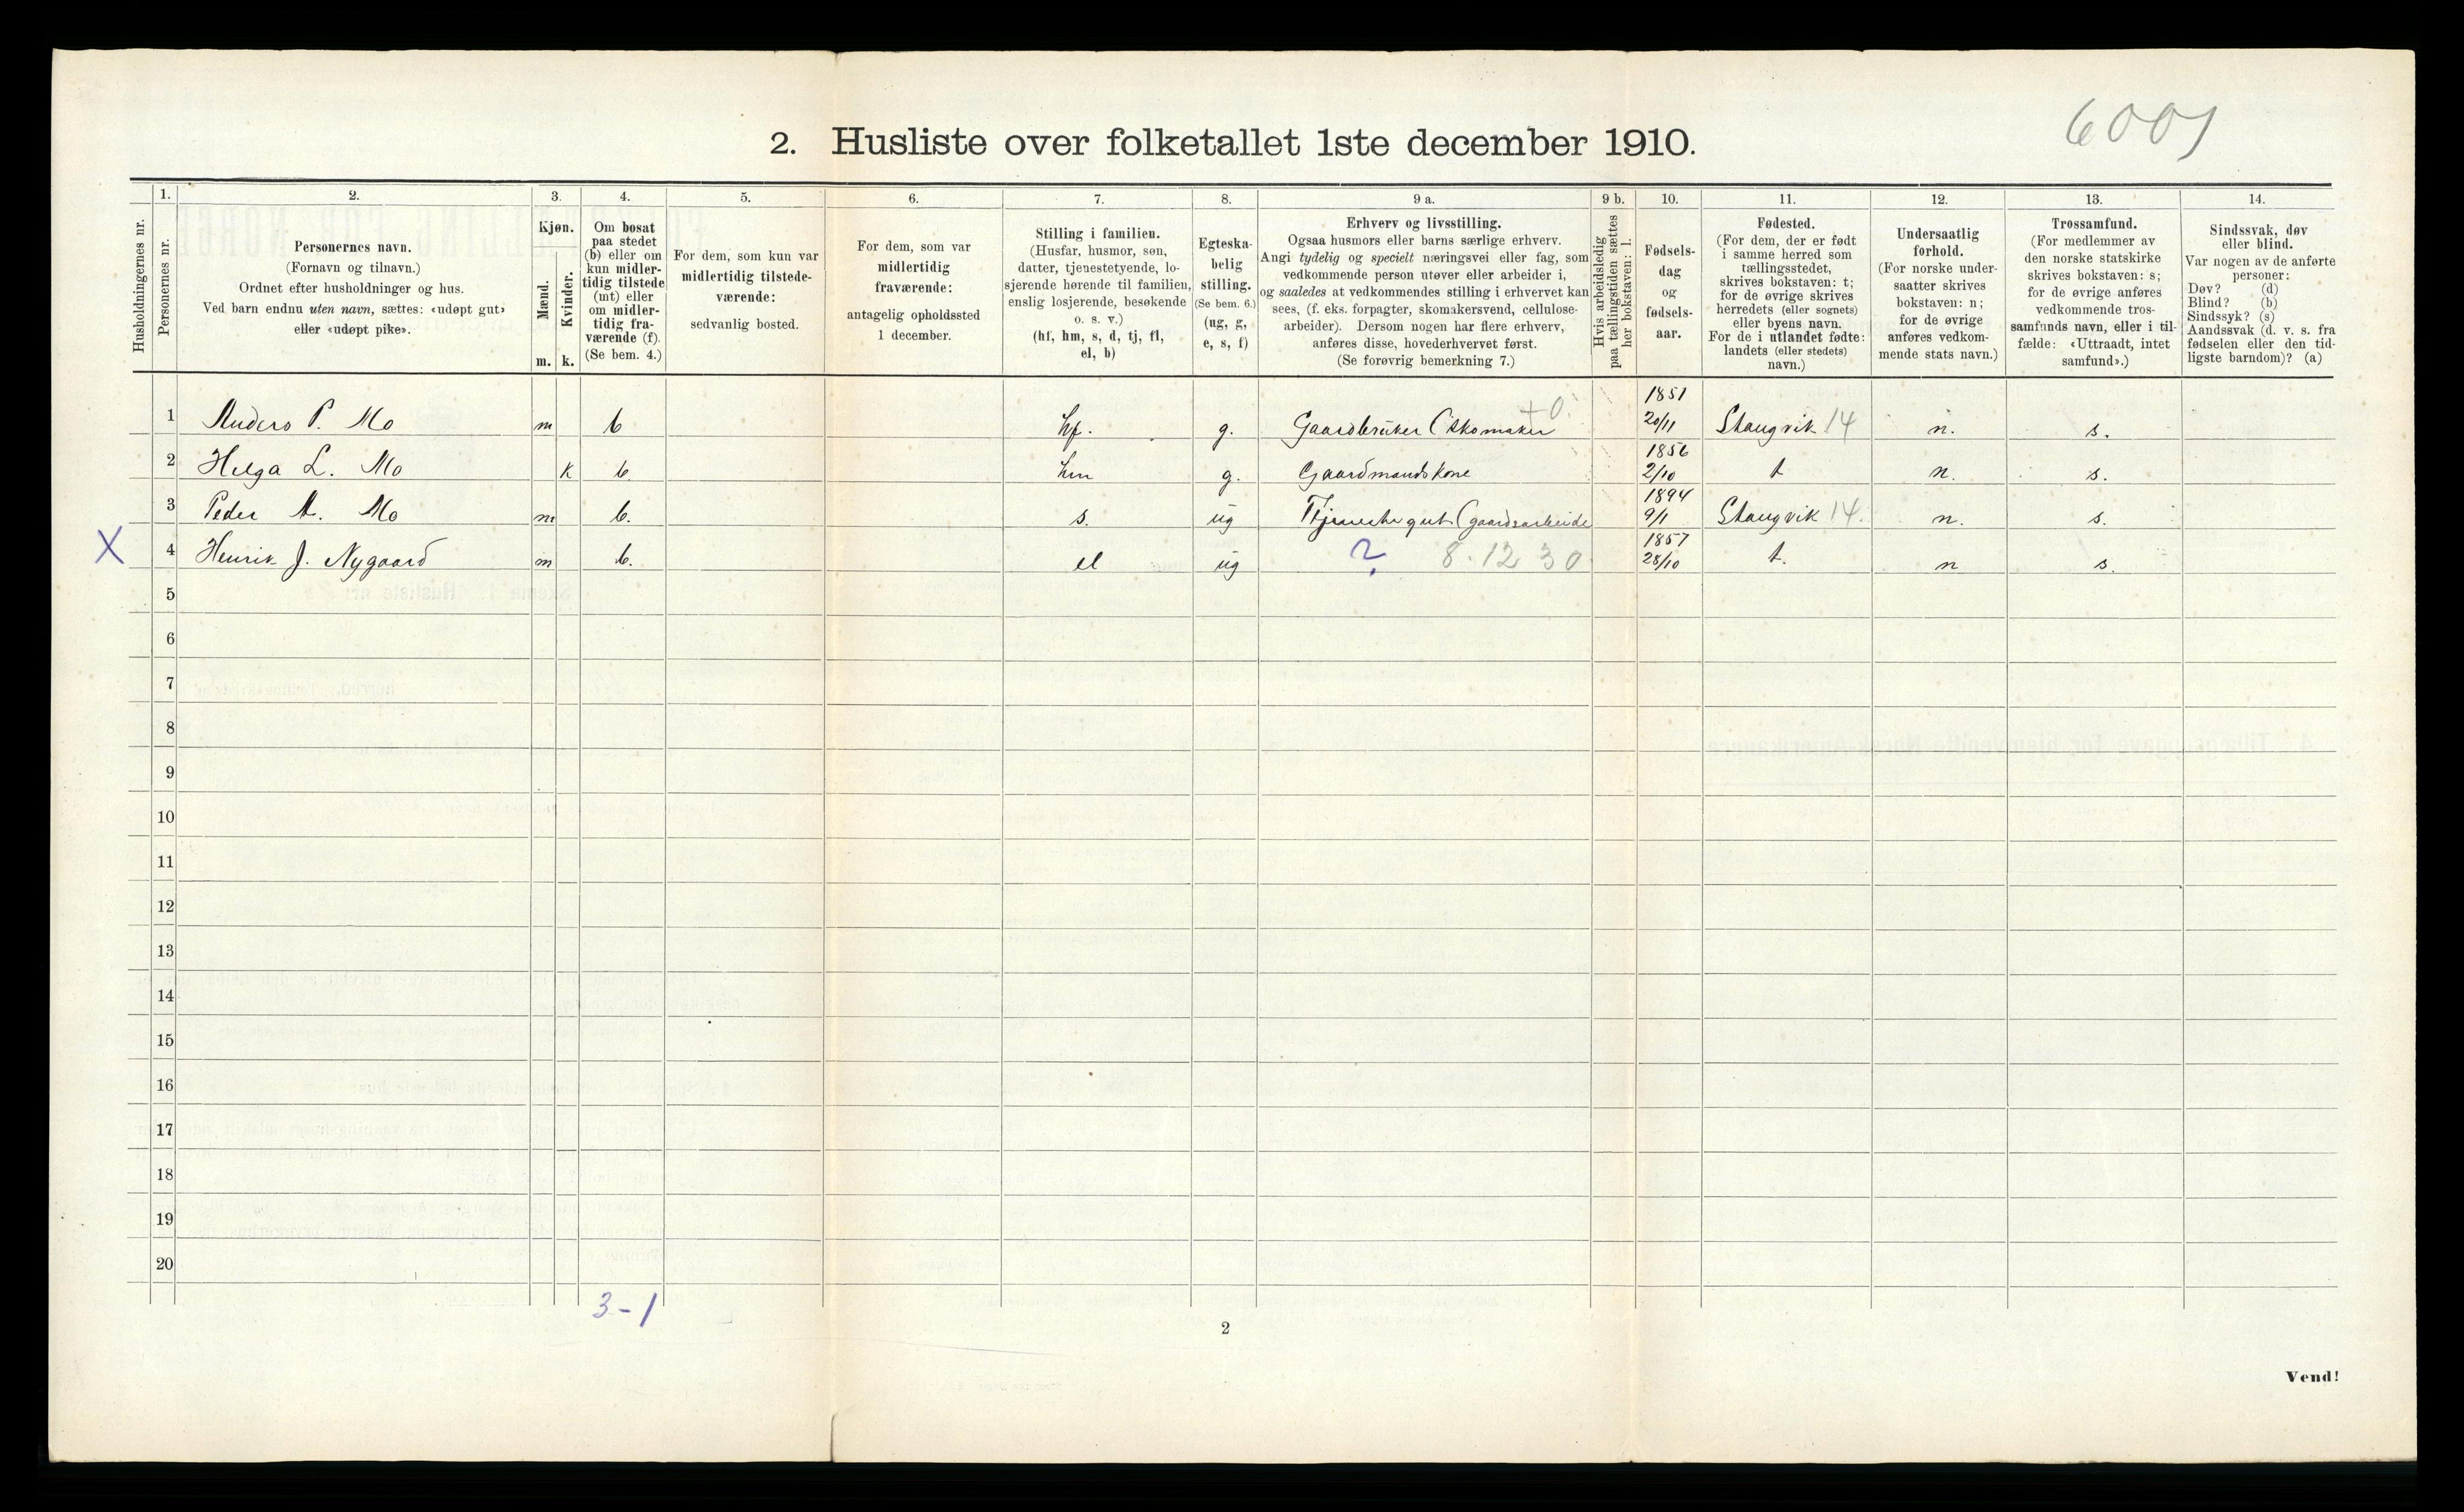 6001
2. Husliste over folketallet 1ste december 1910.
Husholdningernes nr.
1. Personernes nr.
2. Personernes navn.
(Fornavn og tilnavn.)
Ordnet efter husholdninger og hus.
Ved barn endnu uten navn, sættes: «udøpt gut»
eller «udøpt pike».
3. Kjøn.
Mænd. Kvinder.
m. k.
4. Om bosat
paa stedet
(b) eller om
kun midler-
tidig tilstede
(mt) eller
om midler-
tidig fra-
værende (f).
(Se bem. 4.)
5. For dem, som kun var
midlertidig tilstede-
værende:
sedvanlig bosted.
6. For dem, som var
midlertidig
fraværende:
antagelig opholdssted
1 december.
7. Stilling i familien.
(Husfar, husmor, søn,
datter, tjenestetyende, lo-
sjerende hørende til familien,
enslig losjerende, besøkende
o. s. v.)
(hf, hm, s, d, tj, fl,
el, b)
8. Egteska-
belig
stilling.
(Se bem. 6.)
(ug, g,
e, s, f)
9 a. Erhverv og livsstilling.
Ogsaa husmors eller barns særlige erhverv.
Angi tydelig og specielt næringsvei eller fag, som
vedkommende person utøver eller arbeider i,
og saaledes at vedkommendes stilling i erhvervet kan
sees, (f. eks. forpagter, skomakersvend, cellulose-
arbeider). Dersom nogen har flere erhverv,
anføres disse, hovederhvervet først.
(Se forøvrig bemerkning 7.)
9 b. Hvis arbeidsledig
paa tællingstiden sættes
her bokstaven: l.
10. Fødsels-
dag
og
fødsels-
aar.
11. Fødested.
(For dem, der er født
i samme herred som
tællingsstedet,
skrives bokstaven: t;
for de øvrige skrives
herredets (eller sognets)
eller byens navn.
For de i utlandet fødte:
landets (eller stedets)
navn.)
12. Undersaatlig
forhold.
(For norske under-
saatter skrives
bokstaven: n;
for de øvrige
anføres vedkom-
mende stats navn.)
13. Trossamfund.
(For medlemmer av
den norske statskirke
skrives bokstaven: s;
for de øvrige anføres
vedkommende tros-
samfunds navn, eller i til-
fælde: «Uttraadt, intet
samfund».)
14. Sindssvak, døv
eller blind.
Var nogen av de anførte
personer:
Døv? (d)
Blind? (b)
Sindssyk? (s)
Aandssvak (d. v. s. fra
fødselen eller den tid-
ligste barndom)? (a)
1 Anders P. Mo m b hf. g. Gaardbruker (skomaker +0. 1851 20/11 Stangvik 14 n. s.
2 Helga L. Mo k b. hm g. Gaardmandskone 1856 2/10 t n. s.
3 Peder A. Mo m b. s. ug Tjenestegut (gaardsarbeide 1894 9/1 Stangvik 14. n. s.
X 4 Henrik J. Nygaard m b. el ug ? 8.12 30. 1857 28/10 t. n s.
5
6
7
8
9
10
11
12
13
14
15
16
17
18
19
20
3-1
2
Vend!